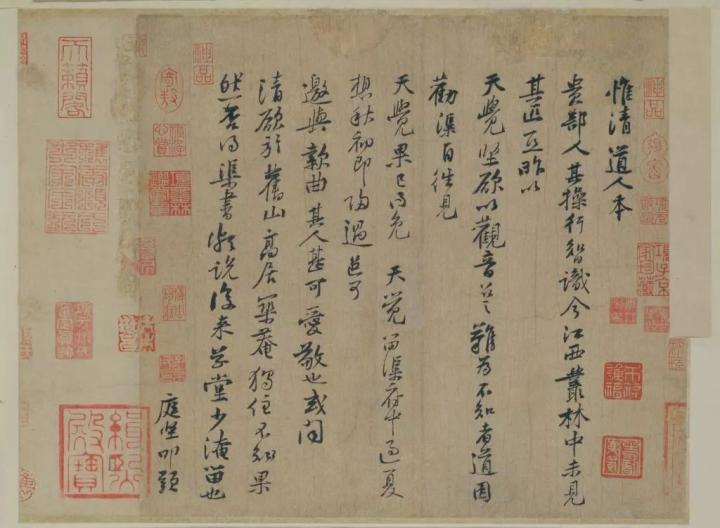 惟清道人本
貴部人其操行智識今江西叢林中未見
其匹亞昨以
天覺堅欲以觀音召之難為不知者道因
勸渠自往見
天覺果已得免 天覺留渠府中過夏
想秋初即歸過邑可
邀與款曲其人甚可愛敬也或聞
清欲於舊山高居築菴獨住不知果
然否得渠書頗說後來草堂少淹留也
庭堅叩頭
神品
神品
天籟閣
緝熙殿寶